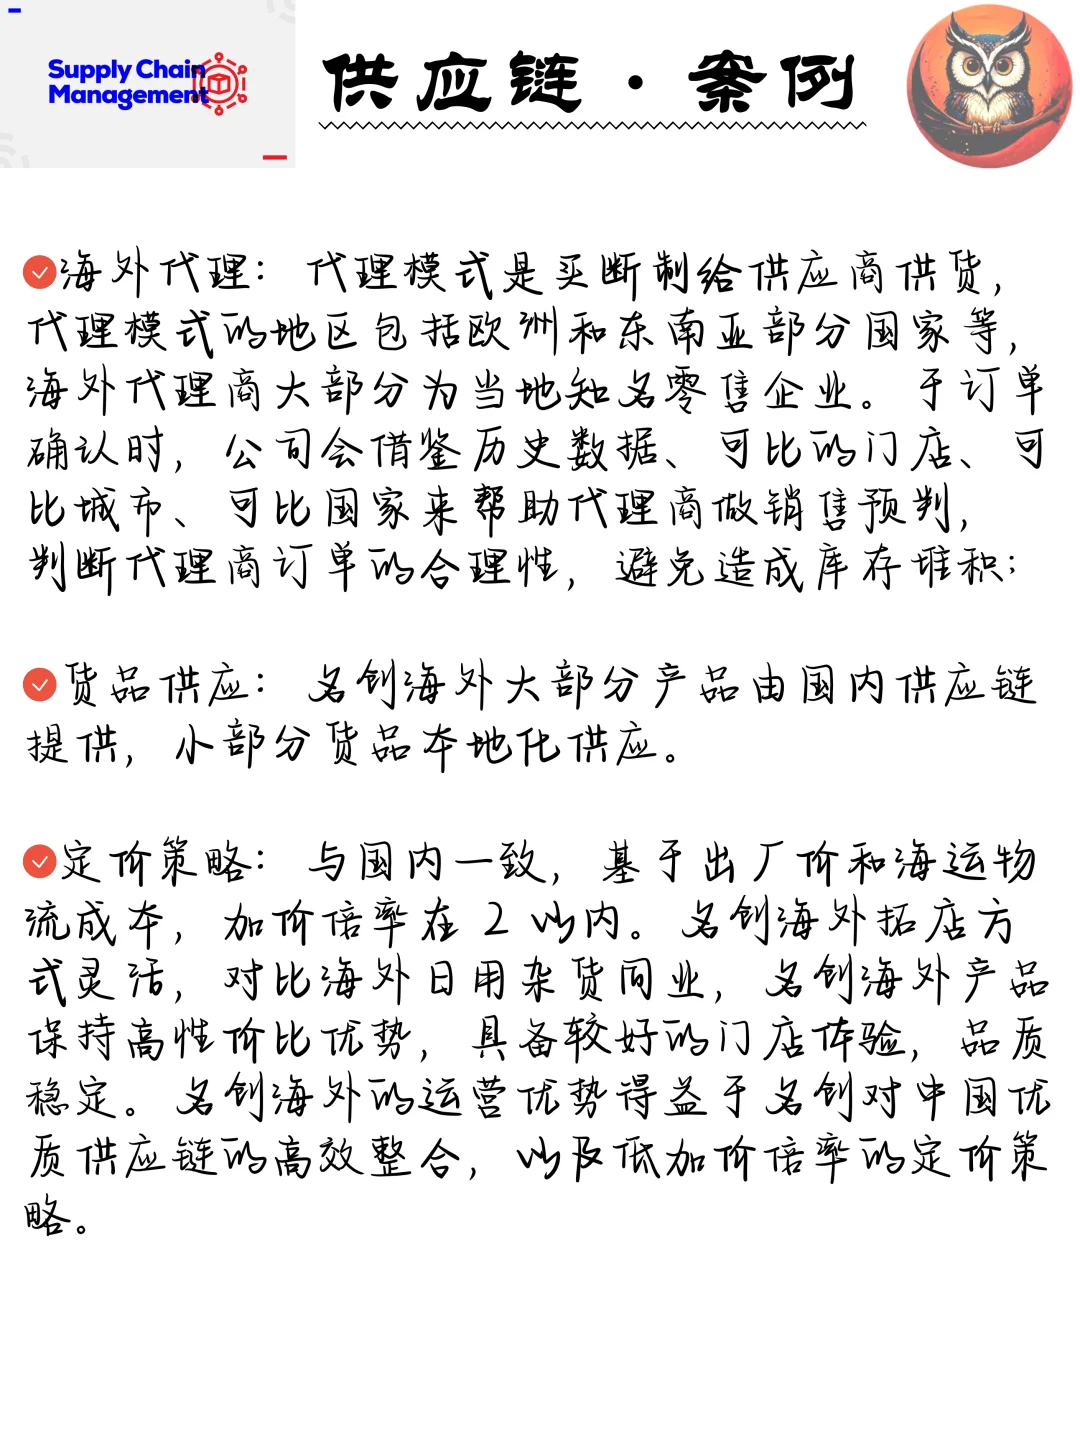 Supply Chain
Management
供应链·案例
海外代理：代理模式是买断制给供应商供货，
代理模式的地区包括欧洲和东南亚部分国家等，
海外代理商大部分为当地知名零售企业。于订单
确认时，公司会借鉴历史数据、可比的门店、可
比城市、可比国家来帮助代理商做销售预判，
判断代理商订单的合理性，避免造成库存堆积；
货品供应：名创海外大部分产品由国内供应链
提供，小部分货品本地化供应。
定价策略：与国内一致，基于出厂价和海运物
流成本，加价倍率在 2 以内。名创海外拓店方
式灵活，对比海外日用杂货同业，名创海外产品
保持高性价比优势，具备较好的门店体验，品质
稳定。名创海外的运营优势得益于名创对中国优
质供应链的高效整合，以及低加价倍率的定价策
略。